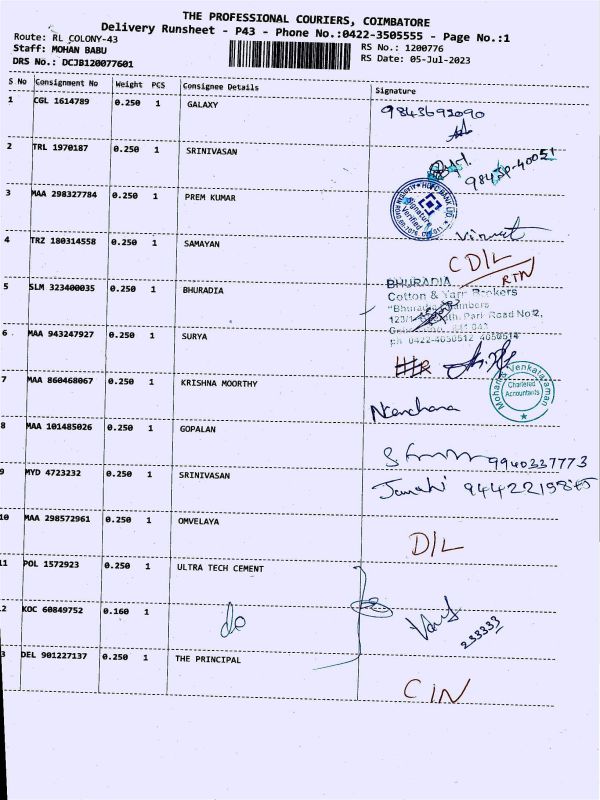 THE PROFESSIONAL COURIERS, COIMBATORE
Delivery Runsheet - P43 - Phone No.:0422-3505555 - Page No.:1
Route: RL COLONY-43
RS No.: 1200776
Staff: MOHAN BABU
RS Date: 05-Jul-2023
DRS No.: DCJB120077601
S No Consignment No Weight PCS Consignee Details Signature
1 CGL 1614789 0.250 1 GALAXY
9843692090
2 TRL 1970187 0.250 1 SRINIVASAN
3 MAA 298327784 0.250 1 PREM KUMAR
HDFC BANK LTD
Signature Verified
4 TRZ 180314558 0.250 1 SAMAYAN
CD/L
RTN
5 SLM 323400035 0.250 1 BHURADIA
BHURADIA
Cotton & Yarn Brokers
Park Road No 2,
ph 0422-4650512 4650514
6 MAA 943247927 0.250 1 SURYA
7 MAA 860468067 0.250 1 KRISHNA MOORTHY
Mohan & Venkataraman
Chartered Accountants
8 MAA 101485026 0.250 1 GOPALAN
9940337773
9 MYD 4723232 0.250 1 SRINIVASAN
Janaki
10 MAA 298572961 0.250 1 OMVELAYA
D/L
11 POL 1572923 0.250 1 ULTRA TECH CEMENT
2 KOC 60849752 0.160 1 do
233333
3 DEL 901227137 0.250 1 THE PRINCIPAL
C IN